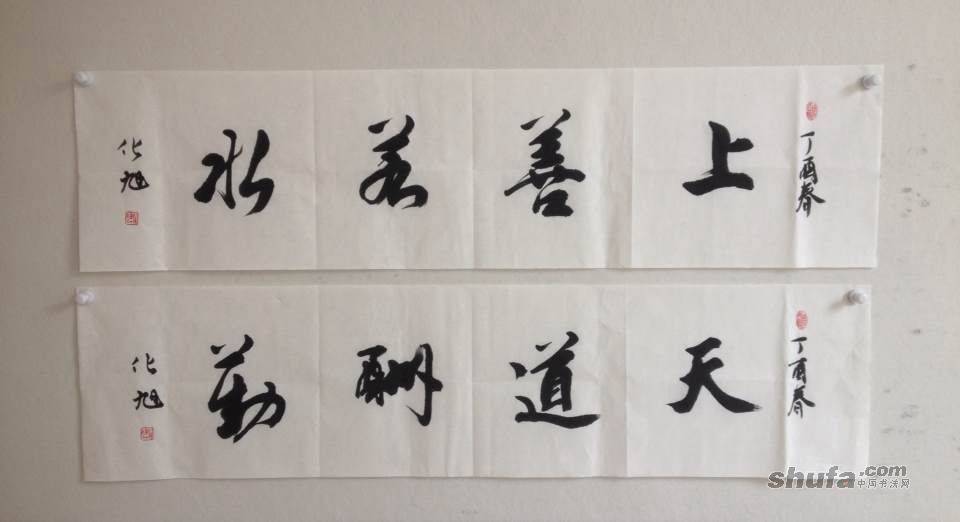 丁酉春
上善若水
化旭
丁酉春
天道酬勤
化旭
shufa.com
中国书法网